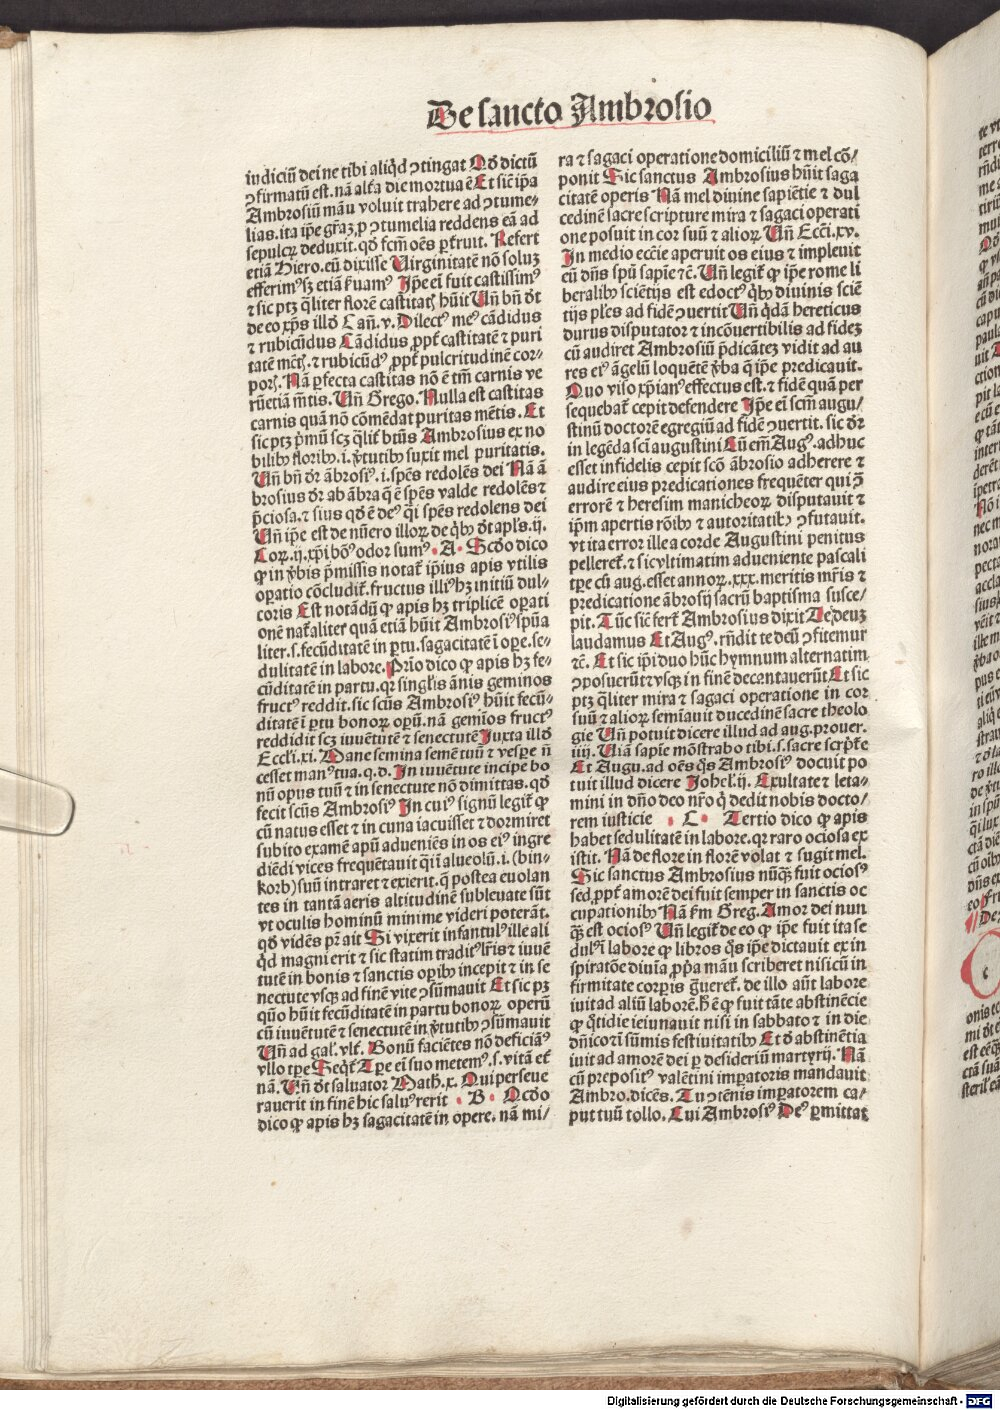 De sancto Ambrosio
iudiciū dei ne tibi aliq̄d ꝯtingat Qd̄ dictū
ꝯfirmatū est. nā alt̄a die mortua ē Et sic̄ ip̄a
Ambrosiū manu voluit trahere ad ꝯtume-
lias. ita ip̄e gr̄aꝫ ꝓ ꝯtumelia reddens eā ad
sepulcꝝ deduxit. qd̄ fcm̄ oēs ꝑt̄ruit. Refert
etiā Hiero. eū dixisse Uirginitatē nō soluꝫ
efferimꝰ sꝫ etiā ẜuamꝰ Ip̄e em̄ fuit castissimꝰ
⁊ sic ptꝫ qͣliter florē castitatꝭ hūit Un̄ bn̄ d̄r
de eo xp̄s illd̄ Can̄. v. Dilectꝰ meꝰ cādidus
⁊ rubicūdus Cādidus ꝓpt̄ castitatē ⁊ puri
tatē mētꝭ. ⁊ rubicūdꝰ ꝓpt̄ pulcritudinē cor-
porꝭ. Nā ꝑfecta castitas nō ē tm̄ carnis ve
rūetiā mētis. Un̄ Grego. Nulla est castitas
carnis quā nō cōmēdat puritas mētis. Et
sic ptꝫ pͥmū scꝫ qͣlit̄ btūs Ambrosius ex no
bilibꝰ floribꝰ. i. v̄tutibꝰ suxit mel puritatis.
Un̄ bn̄ dr̄ ābrosiꝰ. i. spēs redolēs dei Nā ā
brosius dr̄ ab ābra q̄ ē spēs valde redolēs ⁊
p̄ciosa. ⁊ sius qd̄ ē deꝰ qͣi spēs redolens dei
Un̄ ip̄e est de nūero illoꝝ de qͥbꝰ dt̄ apl̄s. ij.
Coꝝ. ij. xp̄i bōꝰ odor sumꝰ • A • Scd̄o dico
ꝙ in v̄bis p̄missis notat̄ ip̄ius apis vtilis
oꝑatio cōcludit̄. fructus illiꝰ hꝫ initiū dul-
coris Est notādū ꝙ apis hꝫ triplicē oꝑati
onē nat̄aliter quā etiā hūit Ambrosiꝰ spūa
liter. s. fecūditatē in ꝑtu. sagacitatē ī oꝑe. se-
dulitatē in labore. Prīo dico ꝙ apis hꝫ fe-
cūditatē in partu. qꝛ singlis ānis geminos
fructꝰ reddit. sic scūs Ambrosiꝰ hūit fecū-
ditatē ī ꝑtu bonoꝝ opū. nā gemīos fructꝰ
reddidit scꝫ iuuētutē ⁊ senectutē Iuxta illd̄
Eccli. xi. Mane semina semē tuū ⁊ vesꝑe n̄
cesset manꝰ tua. q. d. In iuuētute incipe bo
nū opus tuū ⁊ in senectute nō dimittas. qd̄
fecit scūs Ambrosiꝰ In cuiꝰ signū legit̄ ꝙ
cū natus esset ⁊ in cuna iacuisset ⁊ dormiret
subito examē apū adueniēs in os eiꝰ ingre
diēdi vices frequētauit qͣi ī alueolū. i. (bin-
korb) suū intraret ⁊ exieret. q̄ postea euolan
tes in tantā aeris altitudinē subleuate sūt
vt oculis hominū minime videri poterāt.
qd̄ vidēs pr̄ ait Si vixerit infantulꝰ ille ali
q̄d magni erit ⁊ sic statim traditꝰ lr̄is ⁊ iuuē
tutē in bonis ⁊ sanctis oꝑibꝰ incepit ⁊ in se
nectute vsqꝫ ad finē vite ꝯsūmauit Et sic pꝫ
qūo hūit fecūditatē in partu bonoꝝ operū
cū iuuētutē ⁊ senectutē in v̄tutibꝰ ꝯsūmauit
Un̄ ad gal̄. vlt̄. Bonū faciētes nō deficiāꝰ
vllo tꝑe Seqͥt̄ Tꝑe em̄ suo metemꝰ. s. vitā et̄
nā. Un̄ dt̄ saluator Math. x. Qui perseue
rauerit in finē hic saluꝰ rerit • B • Scd̄o
dico ꝙ apis hꝫ sagacitatē in opere. nā mi/
ra ⁊ sagaci operatione domiciliū ⁊ mel cō/
ponit Sic sanctus Ambrosius hūit saga
citatē operis Nā mel diuine sapiētie ⁊ dul
cedinē sacre scripture mira ⁊ sagaci operati
one posuit in cor suū ⁊ alioꝝ Un̄ Ecci. xv.
In medio ecc̄ie aperuit os eius ⁊ impleuit
eū dn̄s spū sapie ⁊c̄. Un̄ legit̄ ꝙ ip̄e rome li
beralibꝰ sciētijs est edoctꝰ qͥbꝰ diuinis sciē
tijs pl̄es ad fidē ꝯuertit Un̄ qͥdā hereticus
durus disputator ⁊ incōuertibilis ad fideꝫ
cū audiret Ambrosiū p̄dicāteꝫ vidit ad au
res eiꝰ āgelū loquētē v̄ba q̄ ip̄e predicauit.
Quo viso xp̄ianꝰ effectus est. ⁊ fidē quā per
sequebat̄ cepit defendere Ip̄e em̄ scm̄ augu/
stinū doctorē egregiū ad fidē ꝯuertit. sic dr̄
in legēda sci augustini Cū em̄ Augꝰ. adhuc
esset infidelis cepit scō ābrosio adherere ⁊
audire eius predicationes frequēter qui ꝯ̄
errorē ⁊ heresim manicheoꝝ disputauit ⁊
ip̄m apertis rōibꝰ ⁊ autoritatibꝰ ꝯfutauit.
vt ita error ille a corde Augustini penitus
pelleret̄. ⁊ sic vltimatim adueniente pascali
tꝑe cū aug. esset annoꝝ. xxx. meritis mr̄is ⁊
predicatione ābrosij sacrū baptisma susce/
pit. Tūc sic̄ fert̄ Ambrosius dixit Te deuꝫ
laudamus Et Augꝰ. rn̄dit te deū ꝯfitemur
⁊c̄. Et sic ip̄i duo hūc hymnum alternatim
ꝯposuerūt ⁊ vsqꝫ in finē decantauerūt Et sic
ptꝫ qͣliter mira ⁊ sagaci operatione in cor
suū ⁊ alioꝝ semīauit ducedinē sacre theolo
gie Un̄ potuit dicere illud ad aug. prouer.
iiij. Uiā sapie mōstrabo tibi. s. sacre scrpt̄e
Et Augu. ad oēs qͦs Ambrosiꝰ docuit po
tuit illud dicere Johel̄. ij. Exultate ⁊ leta-
mini in dn̄o deo nr̄o qͥ dedit nobis docto/
rem iusticie • C • Tertio dico ꝙ apis
habet sedulitatē in labore. qꝛ raro ociosa ex
istit. Nā de flore in florē volat ⁊ sugit mel.
Sic sanctus Ambrosius nūqͣꝫ fuit ociosꝰ
sed ꝓpt̄ amorē dei fuit semper in sanctis oc
cupationibꝰ Nā ẜm Greg. Amor dei nun
qͣꝫ est ociosꝰ Un̄ legit̄ de eo ꝙ ip̄e fuit ita se
dulꝰ ī labore ꝙ libros qͦs ip̄e dictauit ex in
spiratōe diuia ꝓpͥa manu scriberet nisi cū in
firmitate corꝑis gͣueret̄. de illo aūt labore
iuit ad aliū laborē. h̄ ē ꝙ fuit tāte abstinēcie
ꝙ qͦtidie ieiunauit nisi in sabbato ⁊ in die
dn̄ico ⁊ ī sūmis festiuitatibꝰ Et d̄ abstinētia
iuit ad amorē dei ꝑ desideriū martyrij. Nā
cū prepositꝰ valētini imꝑatoris mandauit
Ambro. dicēs. Tu ꝯtēnis imꝑatorem ca/
put tuū tollo. Cui Ambrosiꝰ Deꝰ ꝑmittat
Digitalisierung gefördert durch die Deutsche Forschungsgemeinschaft - DFG